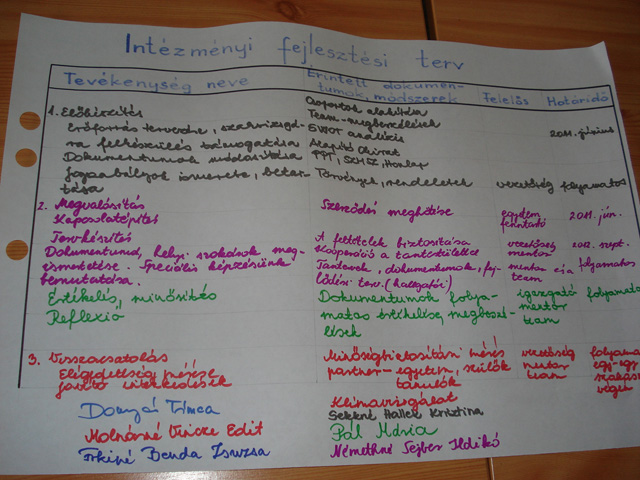 Intézményi fejlesztési terv
Tevékenység neve
Érintett dokumen-
tumok, módszerek
Felelős
Határidő
1. Előkészítés
Erőforrás tervezése, szakvizsgá-
ra felkészülés támogatása
Dokumentumok
jogszabályok ismerete, betar-
tása
Csoportok alakítása
Team-megbeszélések
SWOT analízis
Alapító Okirat
PPT, SZMSZ, Honlap
Törvények, rendeletek
2011. június
vezetőség folyamatos
2. Megvalósítás
Kapcsolatépítés
Tervkészítés
Dokumentumok, helyi szokások meg-
ismertetése. Speciális képzésünk
bemutatása.
Értékelés, minősítés
Reflexió
Szerződés megkötése
A feltételek biztosítása
Kooperáció a tantestülettel
Tantervek, dokumentumok, fej-
lődési terv. (hallgatói)
Dokumentumok folya-
matos értékelése, megbeszé-
lések
egyetem
fenntartó
2011. jún.
vezetőség
mentor
2012. szept.
mentor
team
folyamatos
igazgató
mentor
team
folyamato
3. Visszacsatolás
Elégedettség mérése
javító intézkedések
Minőségbiztosítási mérés
partner-egyetem, szülők
tanulók
Klímavizsgálat
vezetőség
mentor
team
folyama
egy-egy
szakasz
végén
Donyó Tímea
Molnárné Vincze Edit
Benda Zsuzsa
Sekkné Haller Krisztina
Pál Mária
Némethné Sejber Ildikó